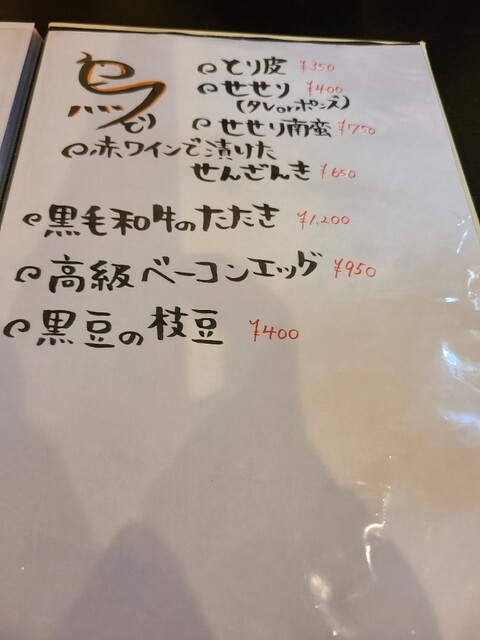 鳥
とり
とり皮 ¥350
せせり ¥400
(タレorポン酢)
せせり南蛮 ¥750
赤ワインで漬けた
せんざんき ¥650
黒毛和牛のたたき ¥1,200
高級ベーコンエッグ ¥950
黒豆の枝豆 ¥400